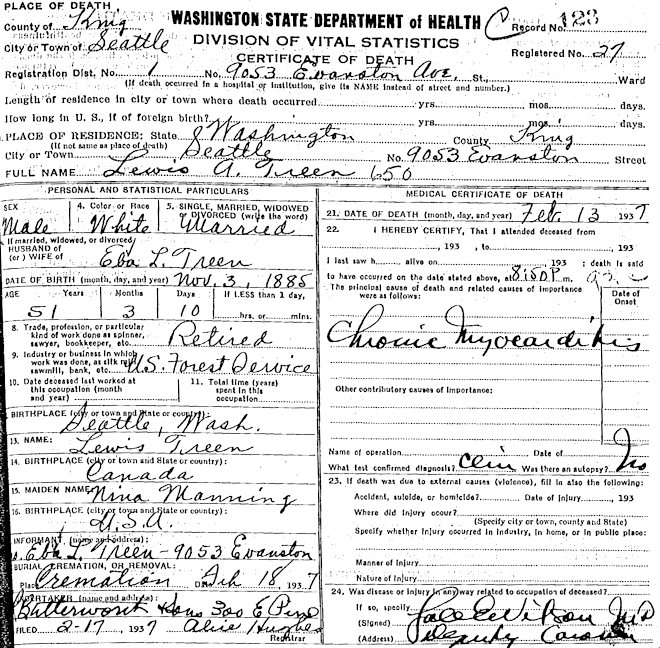 PLACE OF DEATH
WASHINGTON STATE DEPARTMENT of HEALTH
County of King
Record No. 123
City or Town of Seattle
DIVISION OF VITAL STATISTICS
Registered No. 27
CERTIFICATE OF DEATH
Registration Dist. No. 1 No. 9053 Evanston Ave. St., Ward
(If death occurred in a hospital or institution, give its NAME instead of street and number.)
Length of residence in city or town where death occurred yrs. mos. days.
How long in U. S., if of foreign birth? yrs. mos. days.
PLACE OF RESIDENCE: State Washington County King
(If not same as place of death)
City or Town Seattle No. 9053 Evanston Street
FULL NAME Lewis A. Treen 650
PERSONAL AND STATISTICAL PARTICULARS
SEX
Male
4. Color or Race
White
5. SINGLE, MARRIED, WIDOWED
or DIVORCED (write the word)
Married
If married, widowed, or divorced
HUSBAND of
(or) WIFE of Eba L. Treen
DATE OF BIRTH (month, day, and year) Nov. 3, 1885
AGE Years Months Days If LESS than 1 day,
51 3 10 hrs. or mins.
8. Trade, profession, or particular
kind of work done as spinner,
sawyer, bookkeeper, etc. Retired
9. Industry or business in which
work was done, as silk mill,
sawmill, bank, etc. U.S. Forest Service
10. Date deceased last worked at
this occupation (month
and year)
11. Total time (years)
spent in this
occupation
BIRTHPLACE (city or town and State or country):
Seattle, Wash.
13. NAME: Lewis Treen
14. BIRTHPLACE (city or town and State or country):
Canada
15. MAIDEN NAME: Nina Manning
16. BIRTHPLACE (city or town and State or country):
U.S.A.
INFORMANT (name and address):
Eba L. Treen - 9053 Evanston
BURIAL, CREMATION, OR REMOVAL:
Place Cremation Date Feb 18, 1937
UNDERTAKER (name and address):
Butterworth Sons 300 E Pine
FILED 2-17 1937 Alice Hughes
Registrar
MEDICAL CERTIFICATE OF DEATH
21. DATE OF DEATH (month, day, and year) Feb. 13 1937
22. I HEREBY CERTIFY, That I attended deceased from
, 193 , to , 193
I last saw h alive on , 193 ; death is said
to have occurred on the date stated above, at 8:50 P m.
The principal cause of death and related causes of importance
were as follows:
Date of
Onset
Chronic Myocarditis
Other contributory causes of importance:
Name of operation Date of
What test confirmed diagnosis? Clin Was there an autopsy? No
23. If death was due to external causes (violence), fill in also the following:
Accident, suicide, or homicide? Date of injury , 193
Where did injury occur?
(Specify city or town, county and State)
Specify whether injury occurred in industry, in home, or in public place:
Manner of injury
Nature of injury
24. Was disease or injury in any way related to occupation of deceased?
If so, specify
(Signed) M D
(Address) Deputy Coroner